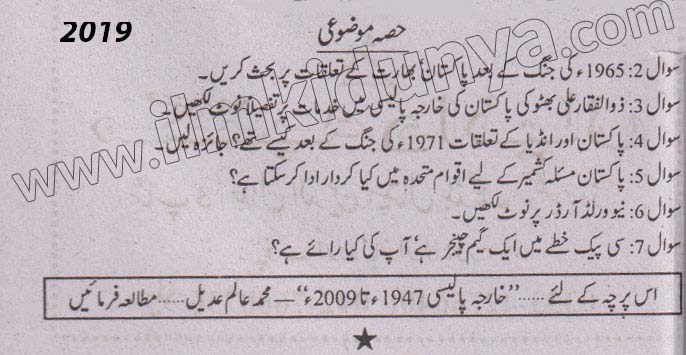 2019
حصہ موضوعی
سوال 2: 1965ء کی جنگ کے بعد پاکستان بھارت کے تعلقات پر بحث کریں۔
سوال 3: ذوالفقار علی بھٹو کی پاکستان کی خارجہ پالیسی میں خدمات پر تفصیلاً نوٹ لکھیں۔
سوال 4: پاکستان اور انڈیا کے تعلقات 1971ء کی جنگ کے بعد کیسے تھے؟ جائزہ لیں۔
سوال 5: پاکستان مسئلہ کشمیر کے لیے اقوام متحدہ میں کیا کردار ادا کر سکتا ہے؟
سوال 6: نیو ورلڈ آرڈر پر نوٹ لکھیں۔
سوال 7: سی پیک خطے میں ایک گیم چینجر ہے' آپ کی کیا رائے ہے؟
اس پرچہ کے لئے ...... ‘‘خارجہ پالیسی 1947ء تا 2009ء’’ — محمد عالم عدیل ...... مطالعہ فرمائیں
www.ilmkidunya.com